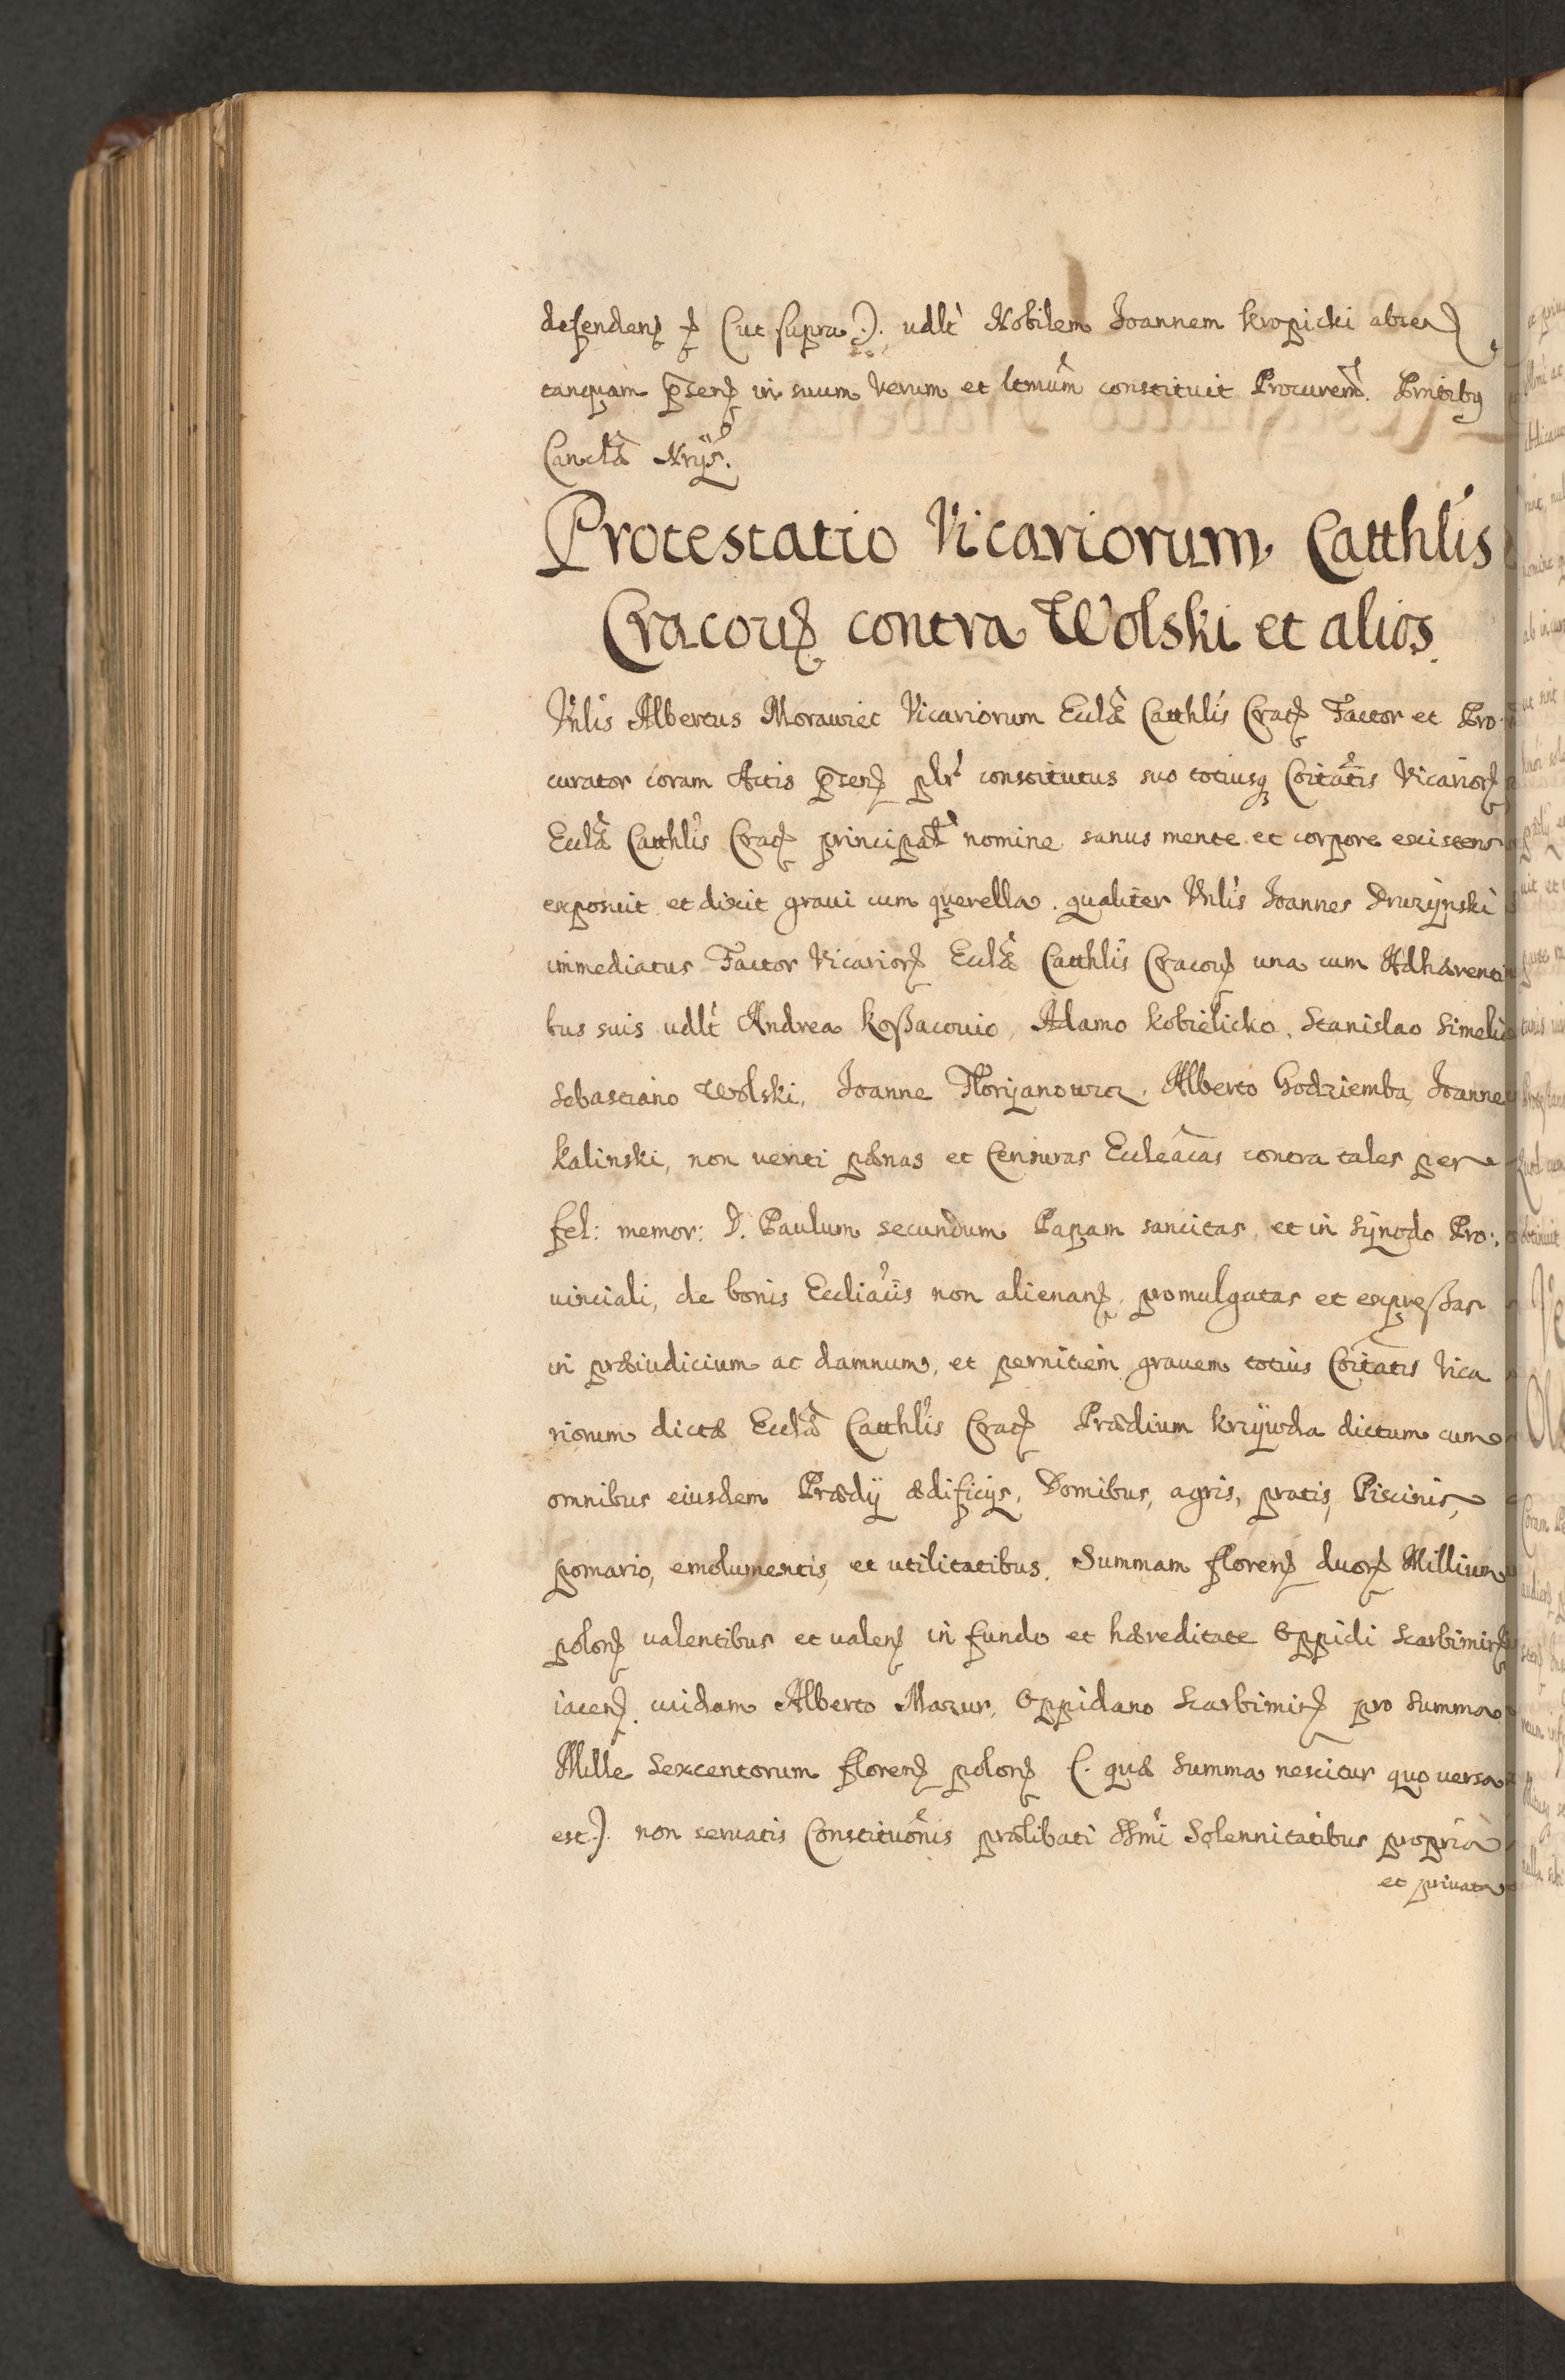 defendenꝭ ꝭ (ut supra.). udlt Nobilem Joannem Kropicki absenꝭ
tanquam p̄senꝭ in suum verum et ltmum constituit Procurem. Pntibꝰ
Cancła Nrijs.
Protestatio Vicariorum Catthlis
Cracouꝭ contra Wolski et alios.
Vnlis Albertus Morawiec Vicariorum Eccłæ Catthlis Cracꝭ Factor et Pro:
curator coram Actis p̄senꝭ plr constitutus suo totiusqꝫ Coitatis Vicariorꝭ
Eccłæ Catthlis Cracꝭ principał nomine sanus mente et corpore existens
exposuit et dixit graui cum querella. qualiter Vnlis Joannes Druzÿnski
immediatus Factor Vicariorꝭ Eccłæ Catthlis Cracouꝭ una cum Adhærenti
bus suis udlt Andrea Koßacouic, Adamo Kobielicko, Stanislao Simelic
Sebastiano Wolski, Joanne Florÿanowicz, Alberto Godziemba, Joanne
Kalinski, non veriti pænas et Censuras Eccleacas contra tales per
fel: memor: D. Paulum secundum Papam sancitas, et in Sÿnodo Pro:
uinciali, de bonis Eccliacis non alienanꝭ, promulgatas et expreßas
in præiudicium ac damnum, et pernitiem grauem totius Coitatis Vica
riorum dictæ Eccłæ Catthlis Cracꝭ Prædium Krzÿwda dictum cum
omnibus eiusdem Prædij ædificijs, Domibus, agris, pratis, Piscinis,
pomario, emolumentis, et utilitatibus, Summam florenꝭ duorꝭ Millium
polonꝭ ualentibus et ualenꝭ in fundo et hæreditate Oppidi Scarbimirꝭ
iacenꝭ cuidam Alberto Mazur, Oppidano Scarbimirꝭ pro Summa
Mille Sexcentorum florenꝭ polonꝭ (. quæ Summa nescitur quo uersa
est.). non seruatis Constituonis prælibati SSmi Solennitatibus propria
et priuata